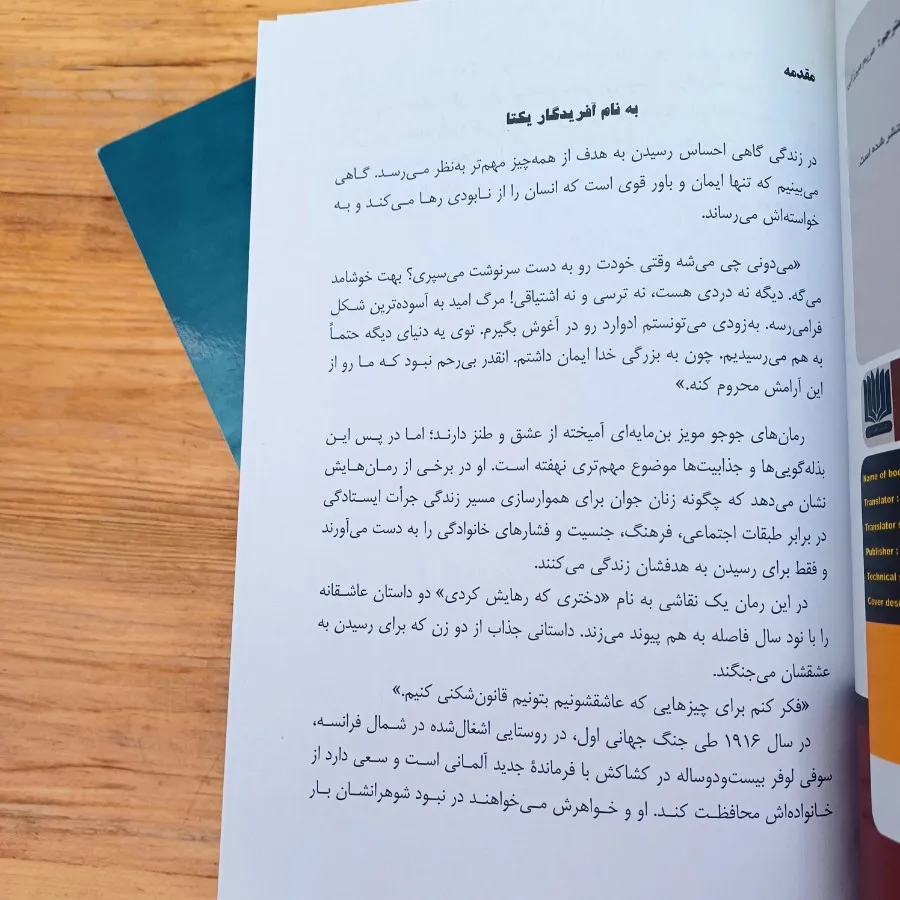 مقدمه
به نام آفریدگار یکتا
در زندگی گاهی احساس رسیدن به هدف از همه‌چیز مهم‌تر به‌نظر می‌رسد. گاهی
می‌بینیم که تنها ایمان و باور قوی است که انسان را از نابودی رها می‌کند و به
خواسته‌اش می‌رساند.
«می‌دونی چی می‌شه وقتی خودت رو به دست سرنوشت می‌سپری؟ بهت خوشامد
می‌گه. دیگه نه دردی هست، نه ترسی و نه اشتیاقی! مرگ امید به آسوده‌ترین شکل
فرامی‌رسه. به‌زودی می‌تونستم ادوارد رو در آغوش بگیرم. توی یه دنیای دیگه حتماً
به هم می‌رسیدیم. چون به بزرگی خدا ایمان داشتم. انقدر بی‌رحم نبود که ما رو از
این آرامش محروم کنه.»
رمان‌های جوجو مویز بن‌مایه‌ای آمیخته از عشق و طنز دارند؛ اما در پس این
بذله‌گویی‌ها و جذابیت‌ها موضوع مهم‌تری نهفته است. او در برخی از رمان‌هایش
نشان می‌دهد که چگونه زنان جوان برای هموارسازی مسیر زندگی جرأت ایستادگی
در برابر طبقات اجتماعی، فرهنگ، جنسیت و فشارهای خانوادگی را به دست می‌آورند
و فقط برای رسیدن به هدفشان زندگی می‌کنند.
در این رمان یک نقاشی به نام «دختری که رهایش کردی» دو داستان عاشقانه
را با نود سال فاصله به هم پیوند می‌زند. داستانی جذاب از دو زن که برای رسیدن به
عشقشان می‌جنگند.
«فکر کنم برای چیزهایی که عاشقشونیم بتونیم قانون‌شکنی کنیم.»
در سال ۱۹۱۶ طی جنگ جهانی اول، در روستایی اشغال‌شده در شمال فرانسه،
سوفی لوفر بیست‌ودوساله در کشاکش با فرماندهٔ جدید آلمانی است و سعی دارد از
خانواده‌اش محافظت کند. او و خواهرش می‌خواهند در نبود شوهرانشان بار
منتشر شده است.
Name of boo
Translator :
Translator s
Publisher :
Technical
Cover desi